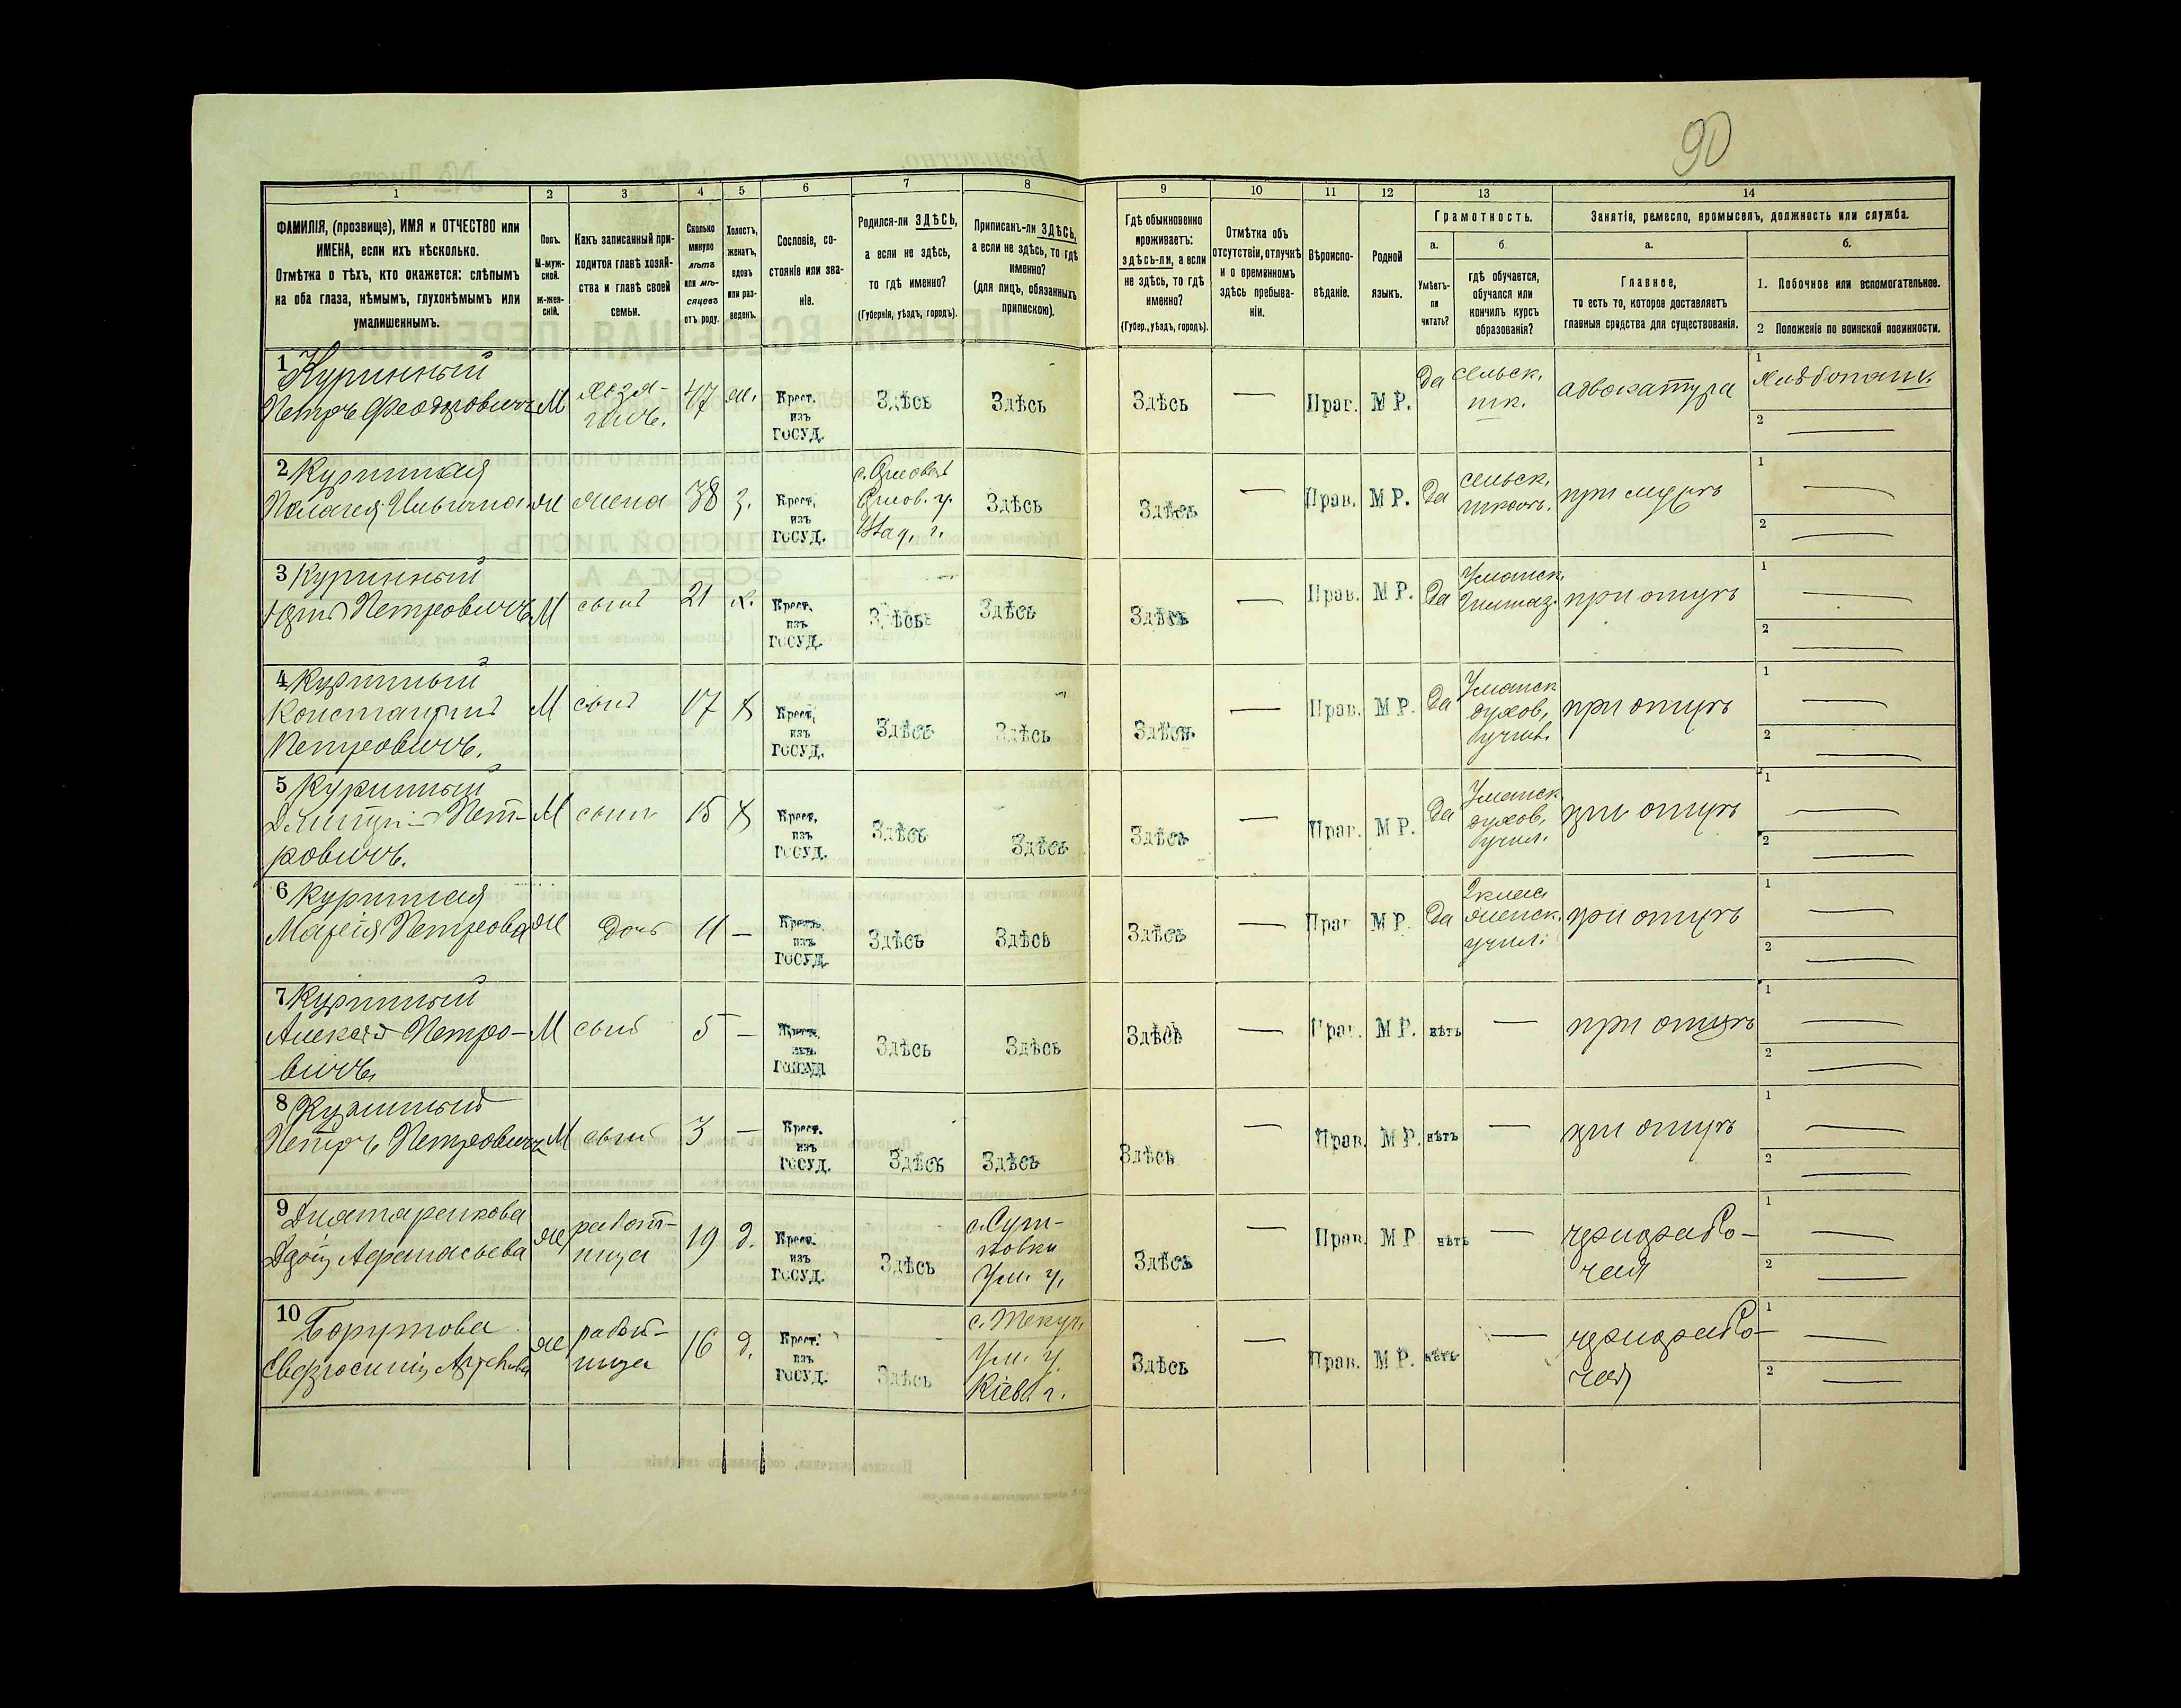 90
1 2 3 4 5 6 7 8 9 10 11 12 13 14
ФАМИЛІЯ, (прозвище), ИМЯ и ОТЧЕСТВО или
ИМЕНА, если ихъ нѣсколько.
Отмѣтка о тѣхъ, кто окажется: слѣпымъ
на оба глаза, нѣмымъ, глухонѣмымъ или
умалишеннымъ.
Полъ.
М-муж-
ской.
ж-жен-
скій.
Какъ записанный при-
ходится главѣ хозяй-
ства и главѣ своей
семьи.
Сколько
минуло
лѣтъ
или мѣ-
сяцевъ
отъ роду.
Холостъ,
женатъ,
вдовъ
или раз-
веденъ.
Сословіе, со-
стояніе или зва-
ніе.
Родился-ли ЗДѢСЬ,
а если не здѣсь,
то гдѣ именно?
(Губернія, уѣздъ, городъ).
Приписанъ-ли ЗДѢСЬ,
а если не здѣсь, то гдѣ
именно?
(для лицъ, обязанныхъ
припискою).
Гдѣ обыкновенно
проживаетъ:
здѣсь-ли, а если
не здѣсь, то гдѣ
именно?
(Губер., уѣздъ, городъ).
Отмѣтка объ
отсутствіи, отлучкѣ
и о временномъ
здѣсь пребыва-
ніи.
Вѣроиспо-
вѣданіе.
Родной
языкъ.
Грамотность.
а.
Умѣетъ-
ли
читать?
б.
гдѣ обучается,
обучался или
кончилъ курсъ
образованія?
Занятія, ремесло, промыселъ, должность или служба.
а.
Главное,
то есть то, которое доставляетъ
главныя средства для существованія.
б.
1. Побочное или вспомогательное.
2 Положеніе по воинской повинности.
1 Куринный
Петръ Феодоровичъ М хозя-
инъ. 47 ж. Крест.
изъ
госуд. Здѣсь Здѣсь Здѣсь — Прав. М Р. Да сельск.
шк. адвокатура 1 хлѣбопаш.
2 —
2 Куринная
Пелагея Ильична ж жена 38 з. Крест.
изъ
госуд. Здѣсь Здѣсь — Прав. М Р. Да сельск.
школ. при мужѣ 1 —
2 —
3 Куринный
Петровичъ М сынъ 21 х. Крест.
изъ
госуд. Здѣсь Здѣсь Здѣсь — Прав. М Р. Да Уманск.
гимназ. при отцѣ 1 —
2 —
4 Куринный
Константинъ
Петровичъ. М сынъ 17 х Крест.
изъ
госуд. Здѣсь Здѣсь Здѣсь — Прав. М Р. Да Уманск
духов.
учил. при отцѣ 1 —
2 —
5 Куринный
Дмитрій Пет-
ровичъ. М сынъ 15 х Крест.
изъ
госуд. Здѣсь Здѣсь Здѣсь — Прав. М Р. Да Уманск
духов.
учил. при отцѣ 1 —
2 —
6 Куринная
Марія Петрова ж дочь 11 — Крест.
изъ
госуд. Здѣсь Здѣсь Здѣсь — Прав. М Р. Да 2 клас.
женск.
учил. при отцѣ 1 —
2 —
7 Куринный
Алексѣй Петро-
вичъ М сынъ 5 — Крест.
изъ
госуд Здѣсь Здѣсь Здѣсь — Прав. М Р. нѣтъ — при отцѣ 1 —
2 —
8 Куринный
Петръ Петровичъ М сынъ 3 — Крест.
изъ
госуд. Здѣсь Здѣсь Здѣсь — Прав. М Р. нѣтъ — при отцѣ 1 —
2 —
9
Афанасьева ж работ-
ница 19 д. Крест.
изъ
госуд. Здѣсь
Ум. у. Здѣсь — Прав. М Р нѣтъ — чернорабо-
чая 1 —
2 —
10
ж работ-
ница 16 д. Крест.
изъ
госуд. Здѣсь с. Текуч.
Ум. у.
Кіев. г. Здѣсь — Прав. М Р. нѣтъ — чернорабо-
чая 1 —
2 —